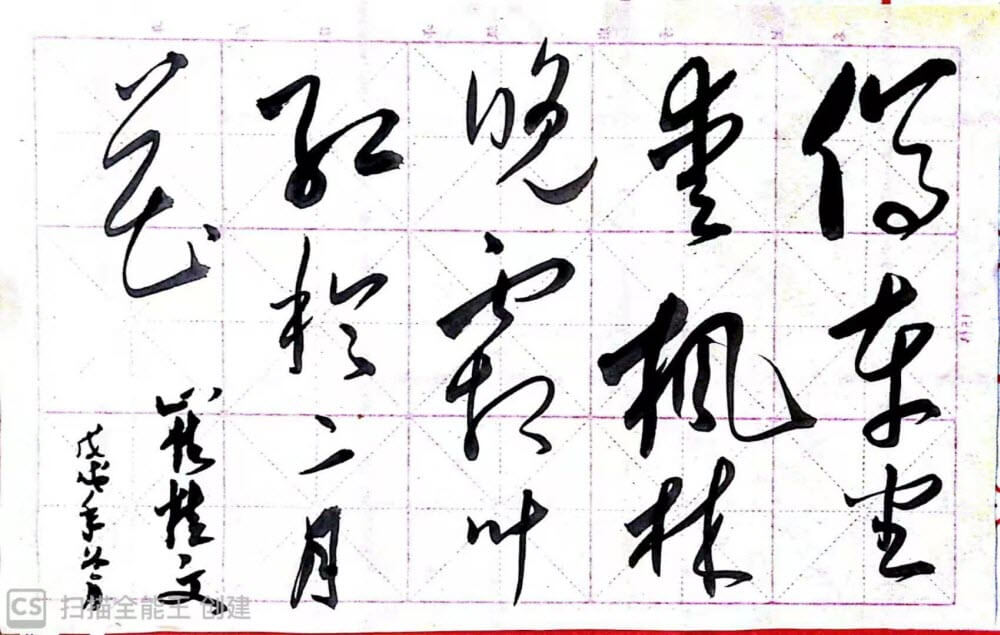 停车坐
爱枫林
晚霜叶
红於二月
花
崔桂文
戊戌年
CS 扫描全能王 创建